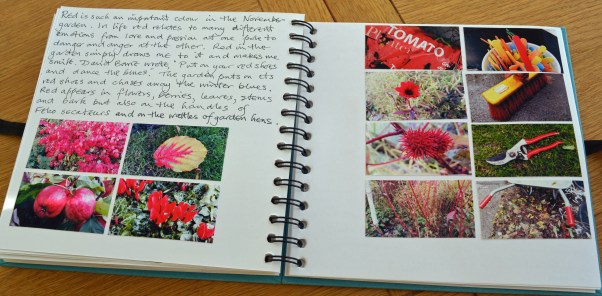 Red is such an important colour in the November
garden. In life red relates to many different
emotions from love and passion at one pole to
danger and anger at the other. Red in the
garden simply draws me to it and makes me
smile. David Bowie wrote, 'Put on your red shoes
and dance the blues'. The garden puts on its
red shoes and chases away the winter blues.
Red appears in flowers, berries, leaves, stems
and bark but also on the handles of
Felco secateurs and on the wattles of garden hens.
TOMATO